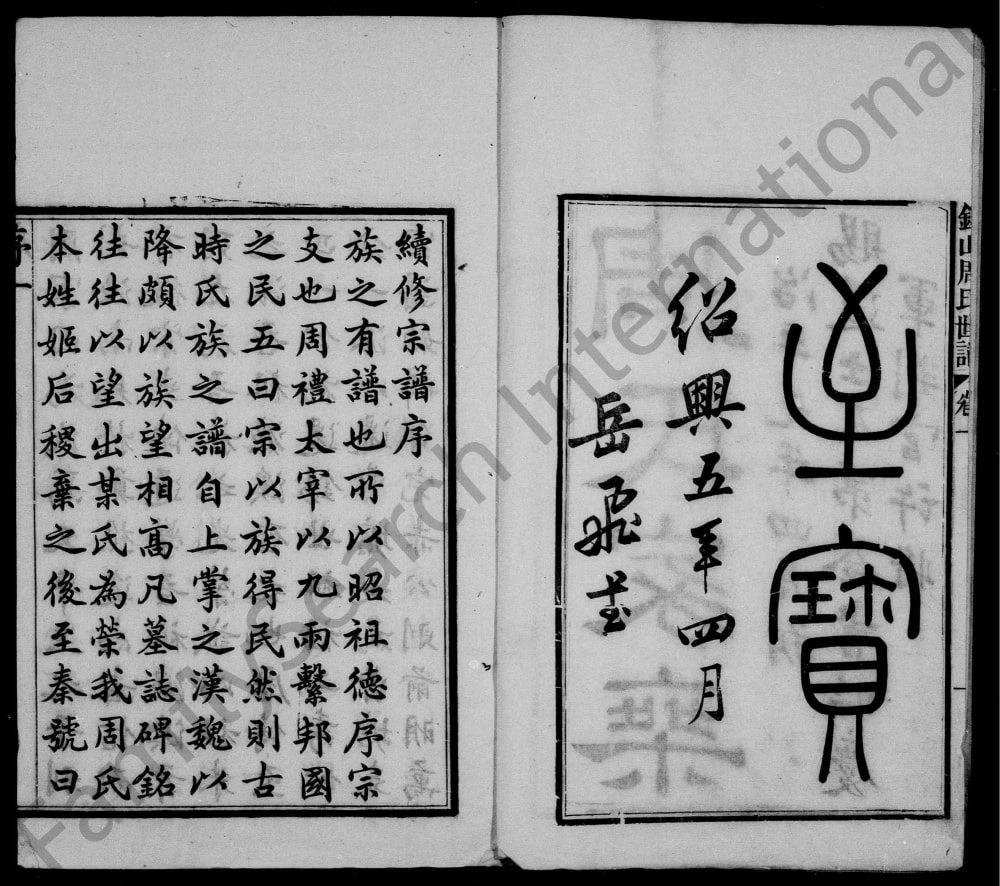 山周氏世譜 卷一
一
至寶
紹興五年四月
岳飛書
續修宗譜序
族之有譜也所以昭祖德序宗
支也周禮太宰以九兩繫邦國
之民五曰宗以族得民然則古
時氏族之譜自上掌之漢魏以
降頗以族望相高凡墓誌碑銘
往往以望出某氏為榮我周氏
本姓姬后稷棄之後至秦號曰
序 一
FamilySearch International